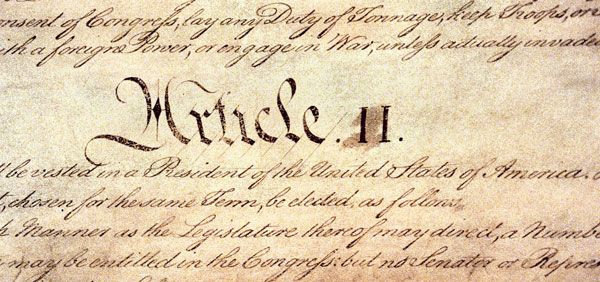 onsent of Congress, lay any Duty of Tonnage, keep Troops, or
ith a foreign Power, or engage in War, unless actually invade
Article. II.
ll be vested in a President of the United States of America.
t, chosen for the same Term, be elected, as follows
h Manner as the Legislature thereof may direct, a Numb
may be entitled in the Congress: but no Senator or Repres